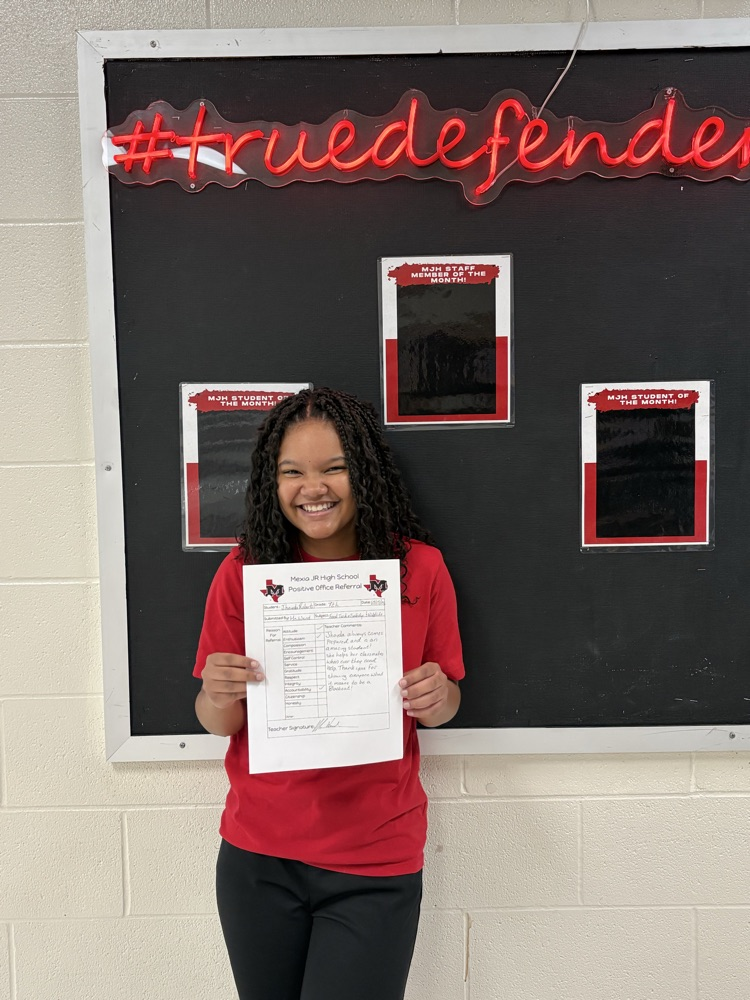 #truedefender
MJH STAFF
MEMBER OF THE
MONTH!
MJH STUDENT OF
THE MONTH!
MJH STUDENT OF
THE MONTH!
Mexia JR High School
Positive Office Referral
M
M
Student: Grade: 7th Date:
Submitted By: Subject:
Reason
For
Referral
Attitude
Enthusiasm
Compassion
Encouragement
Self Control
Service
Gratitude
Respect
Integrity
Accountability
Citizenship
Honesty
Teacher Comments:
always comes
prepared and is an
amazing student!
She helps her classmates
when ever they need
help. Thank you for
showing everyone what
it means to be a
Teacher Signature: